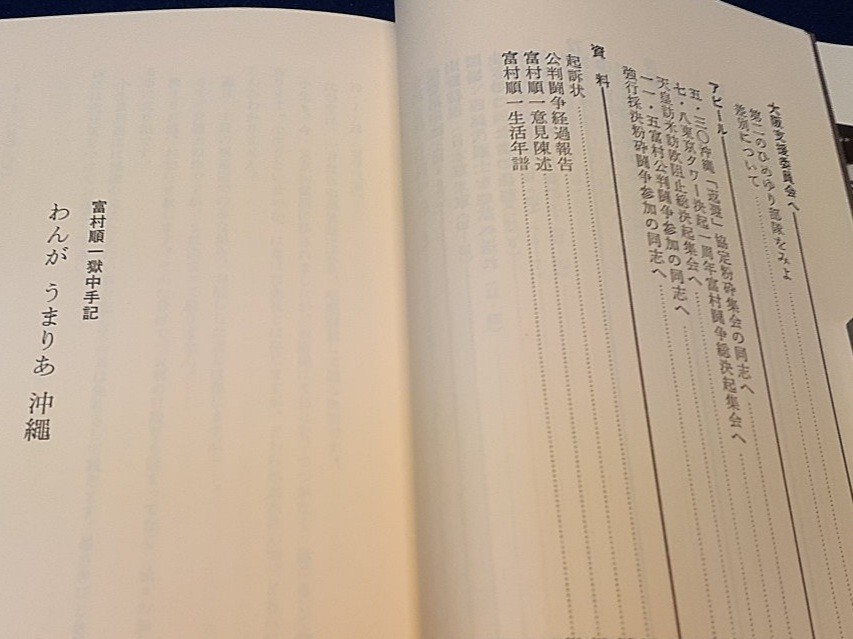 大阪支援委員会へ
第二のひめゆり部隊をみよ
差別について
アピール
五・三〇沖縄「返還」協定粉砕集会の同志へ
七・八東京タワー決起一周年富村闘争総決起集会へ
天皇訪米訪欧阻止総決起集会へ
一一・五富村公判闘争参加の同志へ
強行採決粉砕闘争参加の同志へ
資料
起訴状
公判闘争経過報告
富村順一意見陳述
富村順一生活年譜
富村順一獄中手記
わんが うまりあ 沖縄